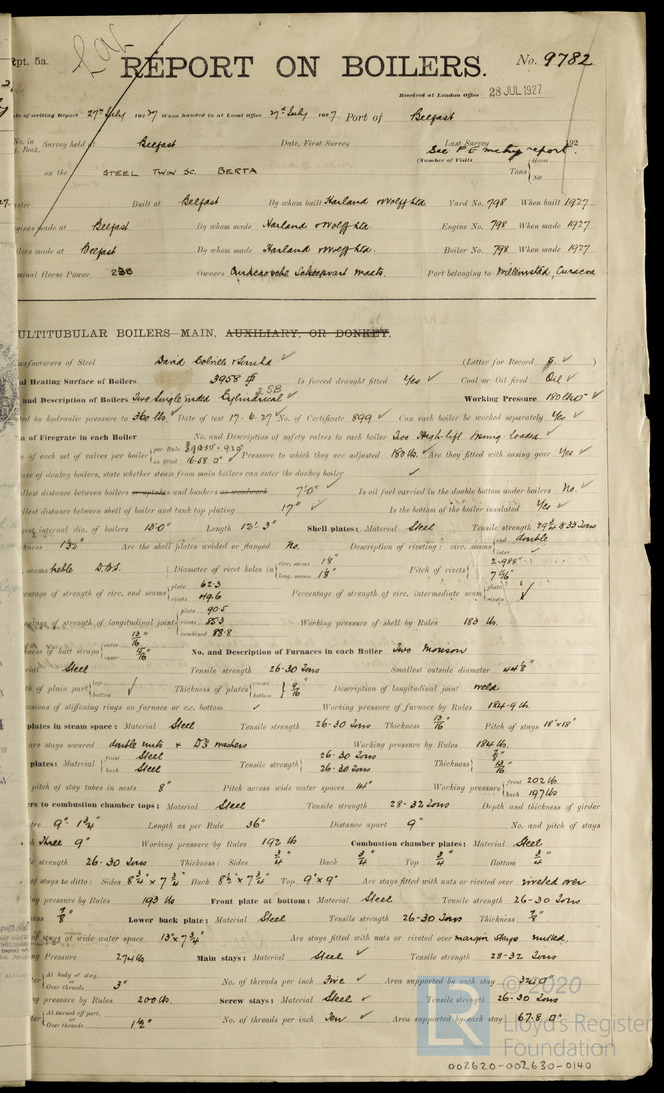 Rpt. 5a.
REPORT ON BOILERS.
No. 9782
Received at London Office 28 JUL 1927
of writing Report 27th July 1927 When handed in at Local Office 27th July 1927 Port of Belfast
No. in Book. Survey held at Belfast Date, First Survey Last Survey 192
See F.E. mchy report.
(Number of Visits Gross
on the STEEL TWIN SC. BERTA Tons
Net
Built at Belfast By whom built Harland & Wolff Ltd Yard No. 798 When built 1927
made at Belfast By whom made Harland & Wolff Ltd. Engine No. 798 When made 1927
made at Belfast By whom made Harland & Wolff Ltd. Boiler No. 798 When made 1927
Horse Power Owners Curacaosche Scheepvart Maats. Port belonging to Willemstad, Curacoa
MULTITUBULAR BOILERS—MAIN, AUXILIARY, OR DONKEY.
of Steel David Colville & Sons Ltd ✓ (Letter for Record S. ✓ )
Heating Surface of Boilers 3958 Is forced draught fitted Yes ✓ Coal or Oil fired Oil ✓
2 SB
and Description of Boilers Two Single Ended Cylindrical ✓ Working Pressure 180 lbs
by hydraulic pressure to 360 lbs. ✓ Date of test 17.6.27 ✓ No. of Certificate 899 ✓ Can each boiler be worked separately Yes ✓
of Firegrate in each Boiler No. and Description of safety valves to each boiler Two High lift Spring loaded. ✓
of each set of valves per boiler per Rule
as fitted 16.58 □" ✓ Pressure to which they are adjusted 180 lbs. ✓ Are they fitted with easing gear Yes ✓
case of donkey boilers, state whether steam from main boilers can enter the donkey boiler ✓
distance between boilers or uptakes and bunkers or woodwork 7'0" ✓ Is oil fuel carried in the double bottom under boilers No. ✓
distance between shell of boiler and tank top plating 17" ✓ Is the bottom of the boiler insulated Yes ✓
internal dia. of boilers 13'0" Length 12'3" Shell plates: Material Steel Tensile strength 29¼ to 33 Tons
Are the shell plates welded or flanged No. Description of riveting: circ. seams end double
inter. ✓
seams treble D.B.S. Diameter of rivet holes in circ. seams 1⅛"
long. seams 1⅛" Pitch of rivets 2.988"
of strength of circ. end seams plate 62.3
rivets 49.6 Percentage of strength of circ. intermediate seam plate
rivets ✓
of strength of longitudinal joint plate 90.5
rivets 85.3
combined 88.8 Working pressure of shell by Rules 183 lbs.
of butt straps outer 13/16"
inner 15/16" No. and Description of Furnaces in each Boiler Two Morison
Steel Tensile strength 26-30 Tons Smallest outside diameter 44⅛"
of plain part top
bottom ✓ Thickness of plates crown
bottom 9/16" Description of longitudinal joint weld
of stiffening rings on furnace or c.c. bottom ✓ Working pressure of furnace by Rules 184.9 lbs.
plates in steam space: Material Steel Tensile strength 26-30 Tons Thickness 13/16" Pitch of stays 18"x18"
are stays secured double nuts & washers Working pressure by Rules 184 lbs.
plates: Material front Steel
back Steel Tensile strength 26-30 Tons
26-30 Tons Thickness ⅞"
13/16"
pitch of stay tubes in nests 8" Pitch across wide water spaces 14" Working pressure front 202 lbs
back 197 lbs
to combustion chamber tops: Material Steel Tensile strength 28-32 Tons Depth and thickness of girder
9" 1¾" Length as per Rule 36" Distance apart 9" No. and pitch of stays
Three 9" Working pressure by Rules 192 lbs Combustion chamber plates: Material Steel
strength 26-30 Tons Thickness: Sides ¾" Back ¾" Top ¾" Bottom ¾"
of stays to ditto: Sides 8¾" x 7¾" Back 8½" x 7¾" Top 9"x9" Are stays fitted with nuts or riveted over riveted over
pressure by Rules 193 lbs Front plate at bottom: Material Steel Tensile strength 26-30 Tons
⅞" Lower back plate: Material Steel Tensile strength 26-30 Tons Thickness ⅞"
of stays at wide water space 13"x7¾" Are stays fitted with nuts or riveted over margin stays nutted.
Pressure 274 lbs Main stays: Material Steel ✓ Tensile strength 28-32 Tons
At body of stay,
or
Over threads 3" No. of threads per inch Five ✓ Area supported by each stay 324 □"
pressure by Rules 200 lbs. Screw stays: Material Steel ✓ Tensile strength 26-30 Tons
At turned off part,
or
Over threads 1½" No. of threads per inch Ten ✓ Area supported by each stay 67.8 □"
© 2020
LR Lloyd's Register
Foundation
002620-002630-0140